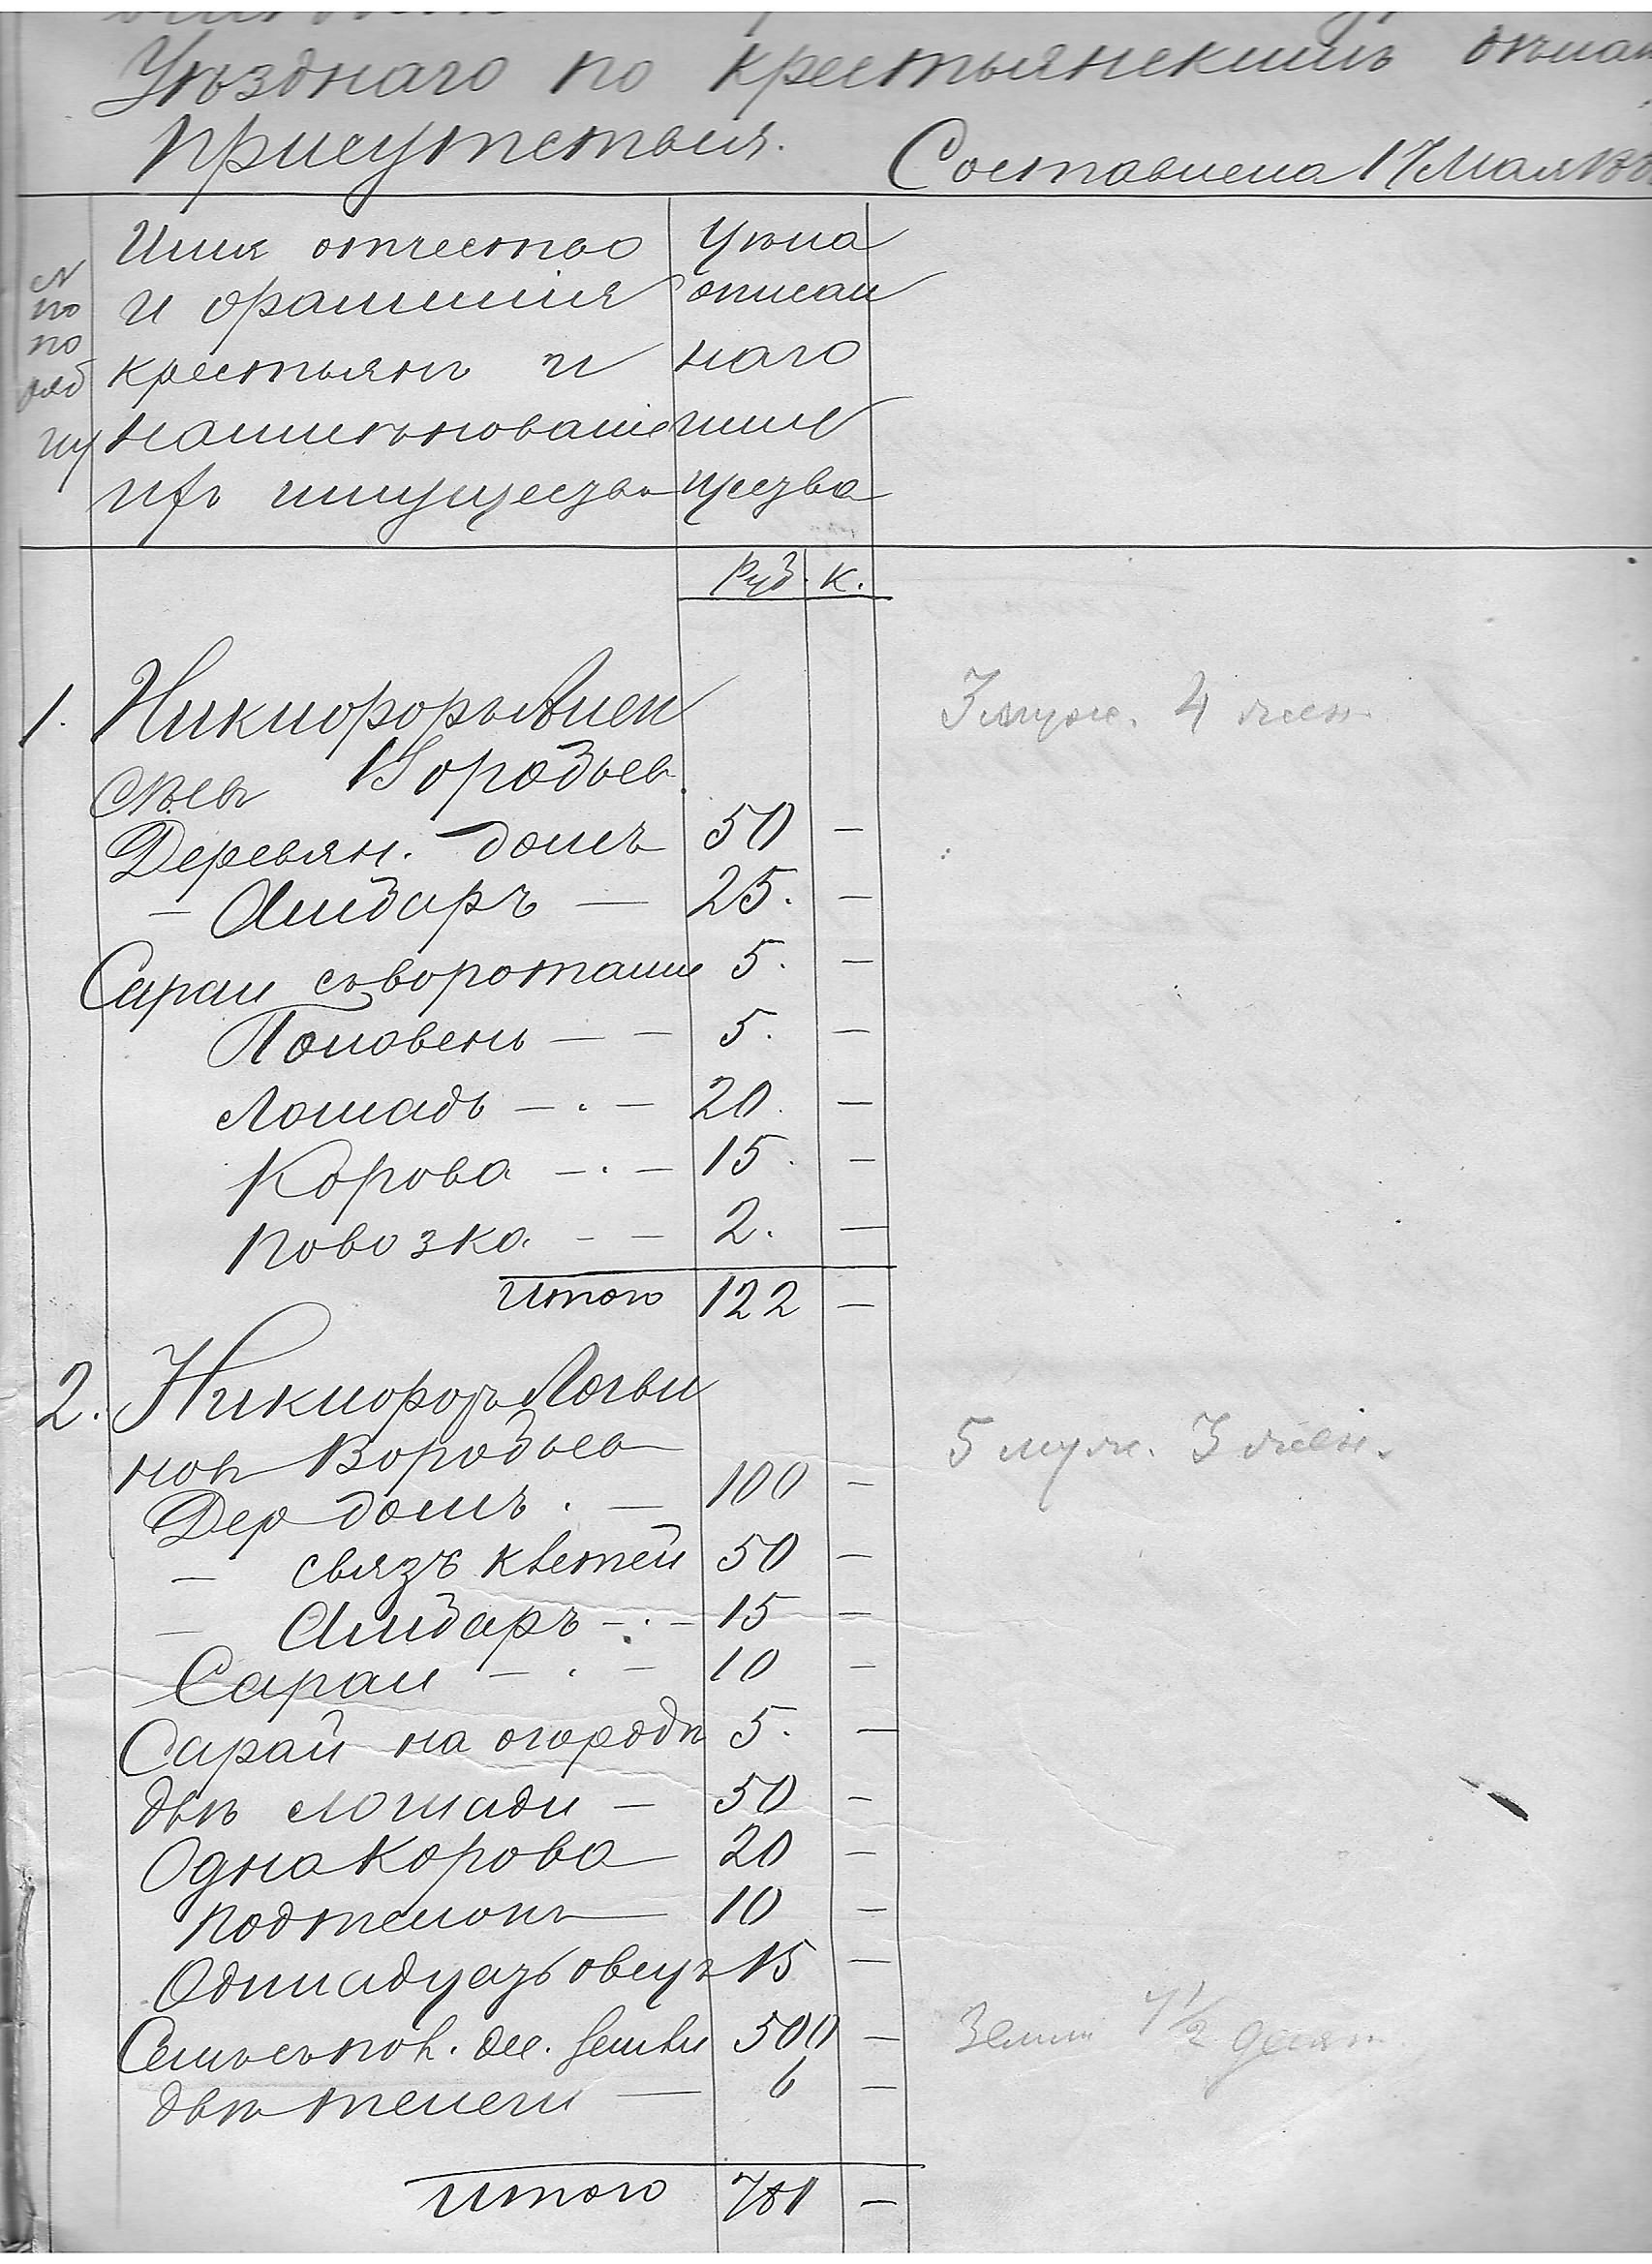 Уѣзднаго по крестьянскимъ дѣламъ
присутствія.
Составлена 17 Мая
№ по по ряд ку
Имя отчество
и фамилія
крестьянъ и
наименованіе
ихъ имущества
Цѣна
описан
наго
иму
щества
Руб. К.
1. Никифоръ Алек
сѣевъ Воробьев
3 муж. 4 жен.
Деревян. домъ 50 —
— Амбаръ — 25. —
Сараи съ воротами 5. —
Половень — — 5. —
Лошадь — . — 20. —
Корова — . — 15. —
Повозка — — 2. —
Итого 122 —
2. Никифоръ Логви
нов Воробьев
5 муж. 3 жен.
Дер домъ . — 100 —
— связъ клетей 50 —
— Амбаръ — . — 15 —
Сараи — . — 10 —
Сарай на огородѣ 5. —
двѣ лошади — 50 —
Одна корова 20 —
подтелокъ 10 —
Одинадцать овецъ 15 —
Семь съ пол. дес. земли 500 —
Земли 7 1/2 десят.
двѣ телеги — 6 —
Итого 781 —